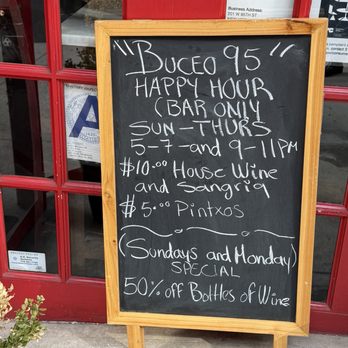 Business Address:
201 W 95TH ST
A
"BUCEO 95"
HAPPY HOUR
(BAR ONLY
SUN-THURS
5-7-and 9-11PM
$10.00 House Wine
and Sangria
$5.00 Pintxos
(Sundays and Monday)
SPECIAL
50% off Bottles of Wine